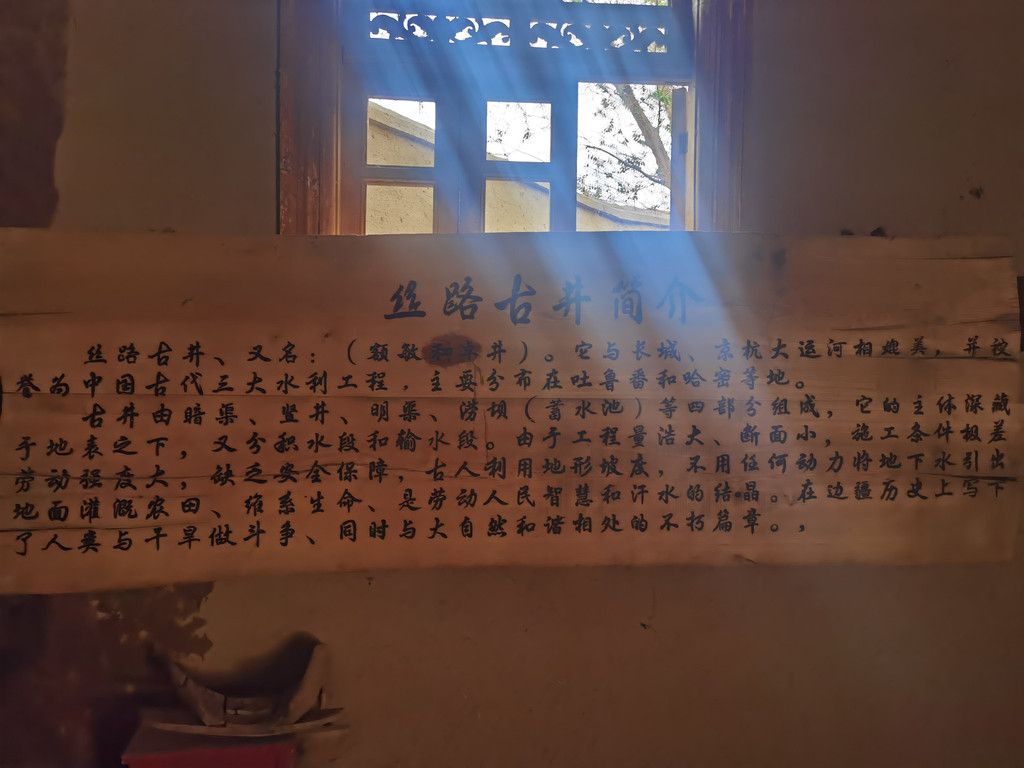 丝路古井简介
丝路古井、又名：（额敏和卓井）。它与长城、京杭大运河相媲美，并被
誉为中国古代三大水利工程，主要分布在吐鲁番和哈密等地。
古井由暗渠、竖井、明渠、涝坝（蓄水池）等四部分组成，它的主体深藏
于地表之下，又分积水段和输水段。由于工程量浩大、断面小，施工条件极差
劳动强度大，缺乏安全保障，古人利用地形坡度，不用任何动力将地下水引出
地面灌溉农田、维系生命、是劳动人民智慧和汗水的结晶。在边疆历史上写下
了人类与干旱做斗争、同时与大自然和谐相处的不朽篇章。，